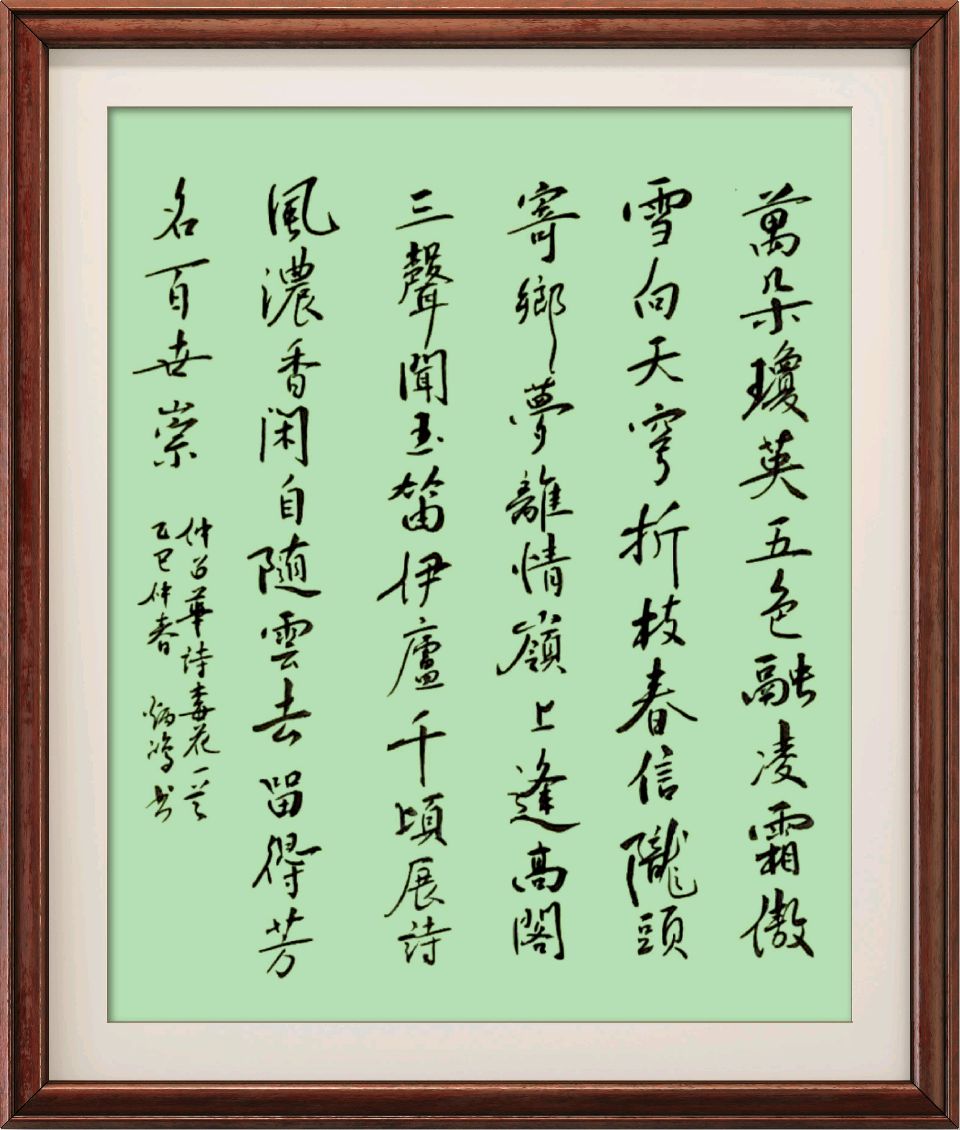 萬朵瓊英五色融凌霜傲
雪向天穹折枝春信隴頭
寄鄉夢離情嶺上逢高閣
三聲聞玉笛伊廬千頃展詩
風濃香閑自隨雲去留得芳
名百世崇
仲呂華詩毒花一首
乙巳仲春 炳鴻书